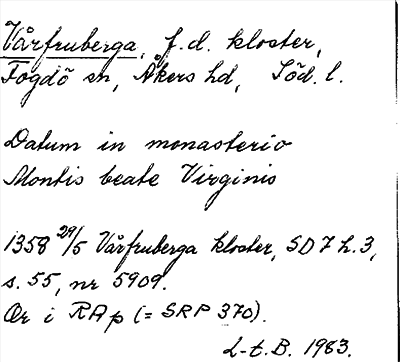 Vårfruberga, f.d. kloster,
Fogdö sn, Åkers hd, Söd. l.
Datum in monasterio
Montis beate Virginis
1358 29/5 Vårfruberga kloster, SD 7 h. 3,
s. 55, nr 5909.
Or i RAp (= SRP 370).
L-t.B. 1983.